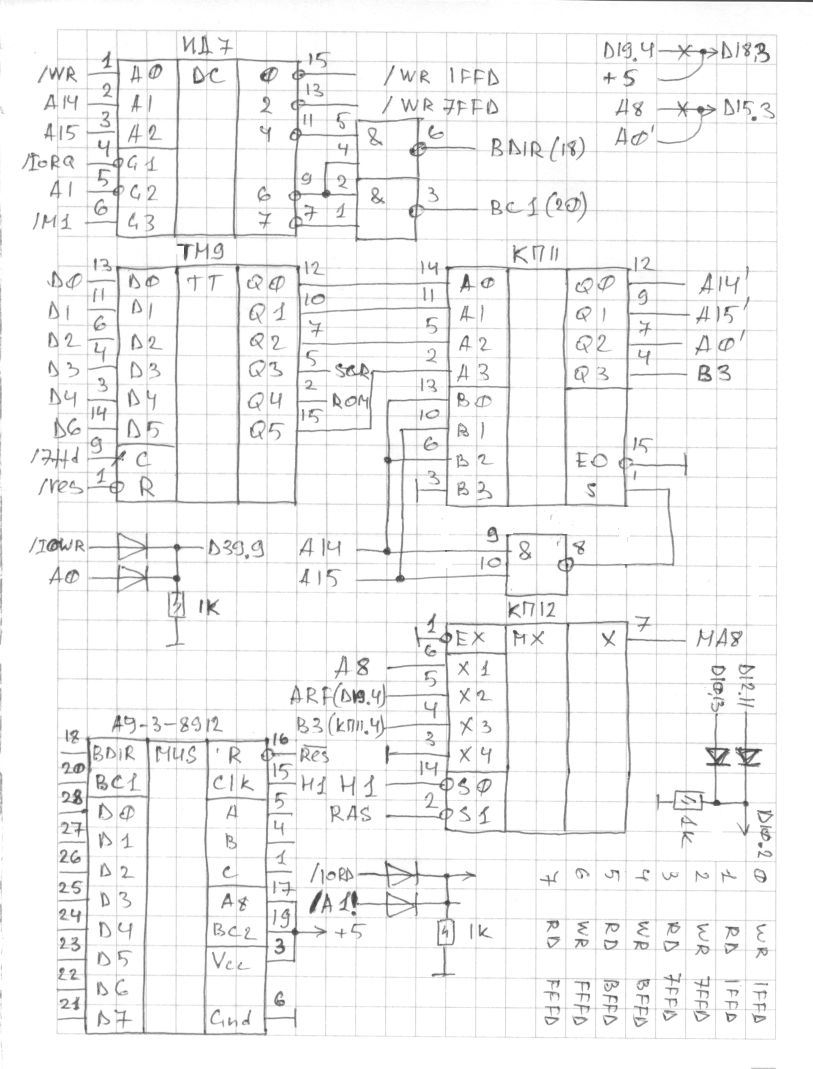 ИД7
1 15
/WR A0 DC 0 /WR 1FFD
2 13
A14 A1 2 /WR 7FFD
3 11 5 6
A15 A2 4 & BDIR(18)
4 4
/IORQ G1
5 9 2 3
A1 G2 6 & BC1(20)
6 7 1
/M1 G3 7
D19.4 D18.3
+5
A8 D15.3
A0'
ТМ9
13 12
D0 D0 TT Q0
11 10
D1 D1 Q1
6 7
D2 D2 Q2
4 5
D3 D3 Q3 SCR
3 2
D4 D4 Q4 ROM
14 15
D6 D5 Q5
9
/7ffd C
1
/res R
КП11
14 12
A0 Q0 A14'
11 9
A1 Q1 A15'
5 7
A2 Q2 A0'
2 4
A3 Q3 B3
13
B0
10
B1
6 15
B2 EO
3 1
B3 S
/IOWR D39.9
A0
1K
9 8
A14 &
10
A15
КП12
1 7
EX MX X MA8
6
A8 X1
5
ARF(D19.4) X2
4
B3(КП11.4) X3
3
X4
14
H1 H1 S0
2
RAS S1
D10.13
D12.11
1K
D10.2
AY-3-8912
18 16
BDIR MUS R Res
20 15
BC1 Clk
28 5
D0 A
27 4
D1 B
26 1
D2 C
25 17
D3 A8
24 19
D4 BC2 +5
23 3
D5 Vcc
22
D6
21 6
D7 Gnd
/IORD
/A1!
1K
0 WR 1FFD
1 RD 1FFD
2 WR 7FFD
3 RD 7FFD
4 WR BFFD
5 RD BFFD
6 WR FFFD
7 RD FFFD